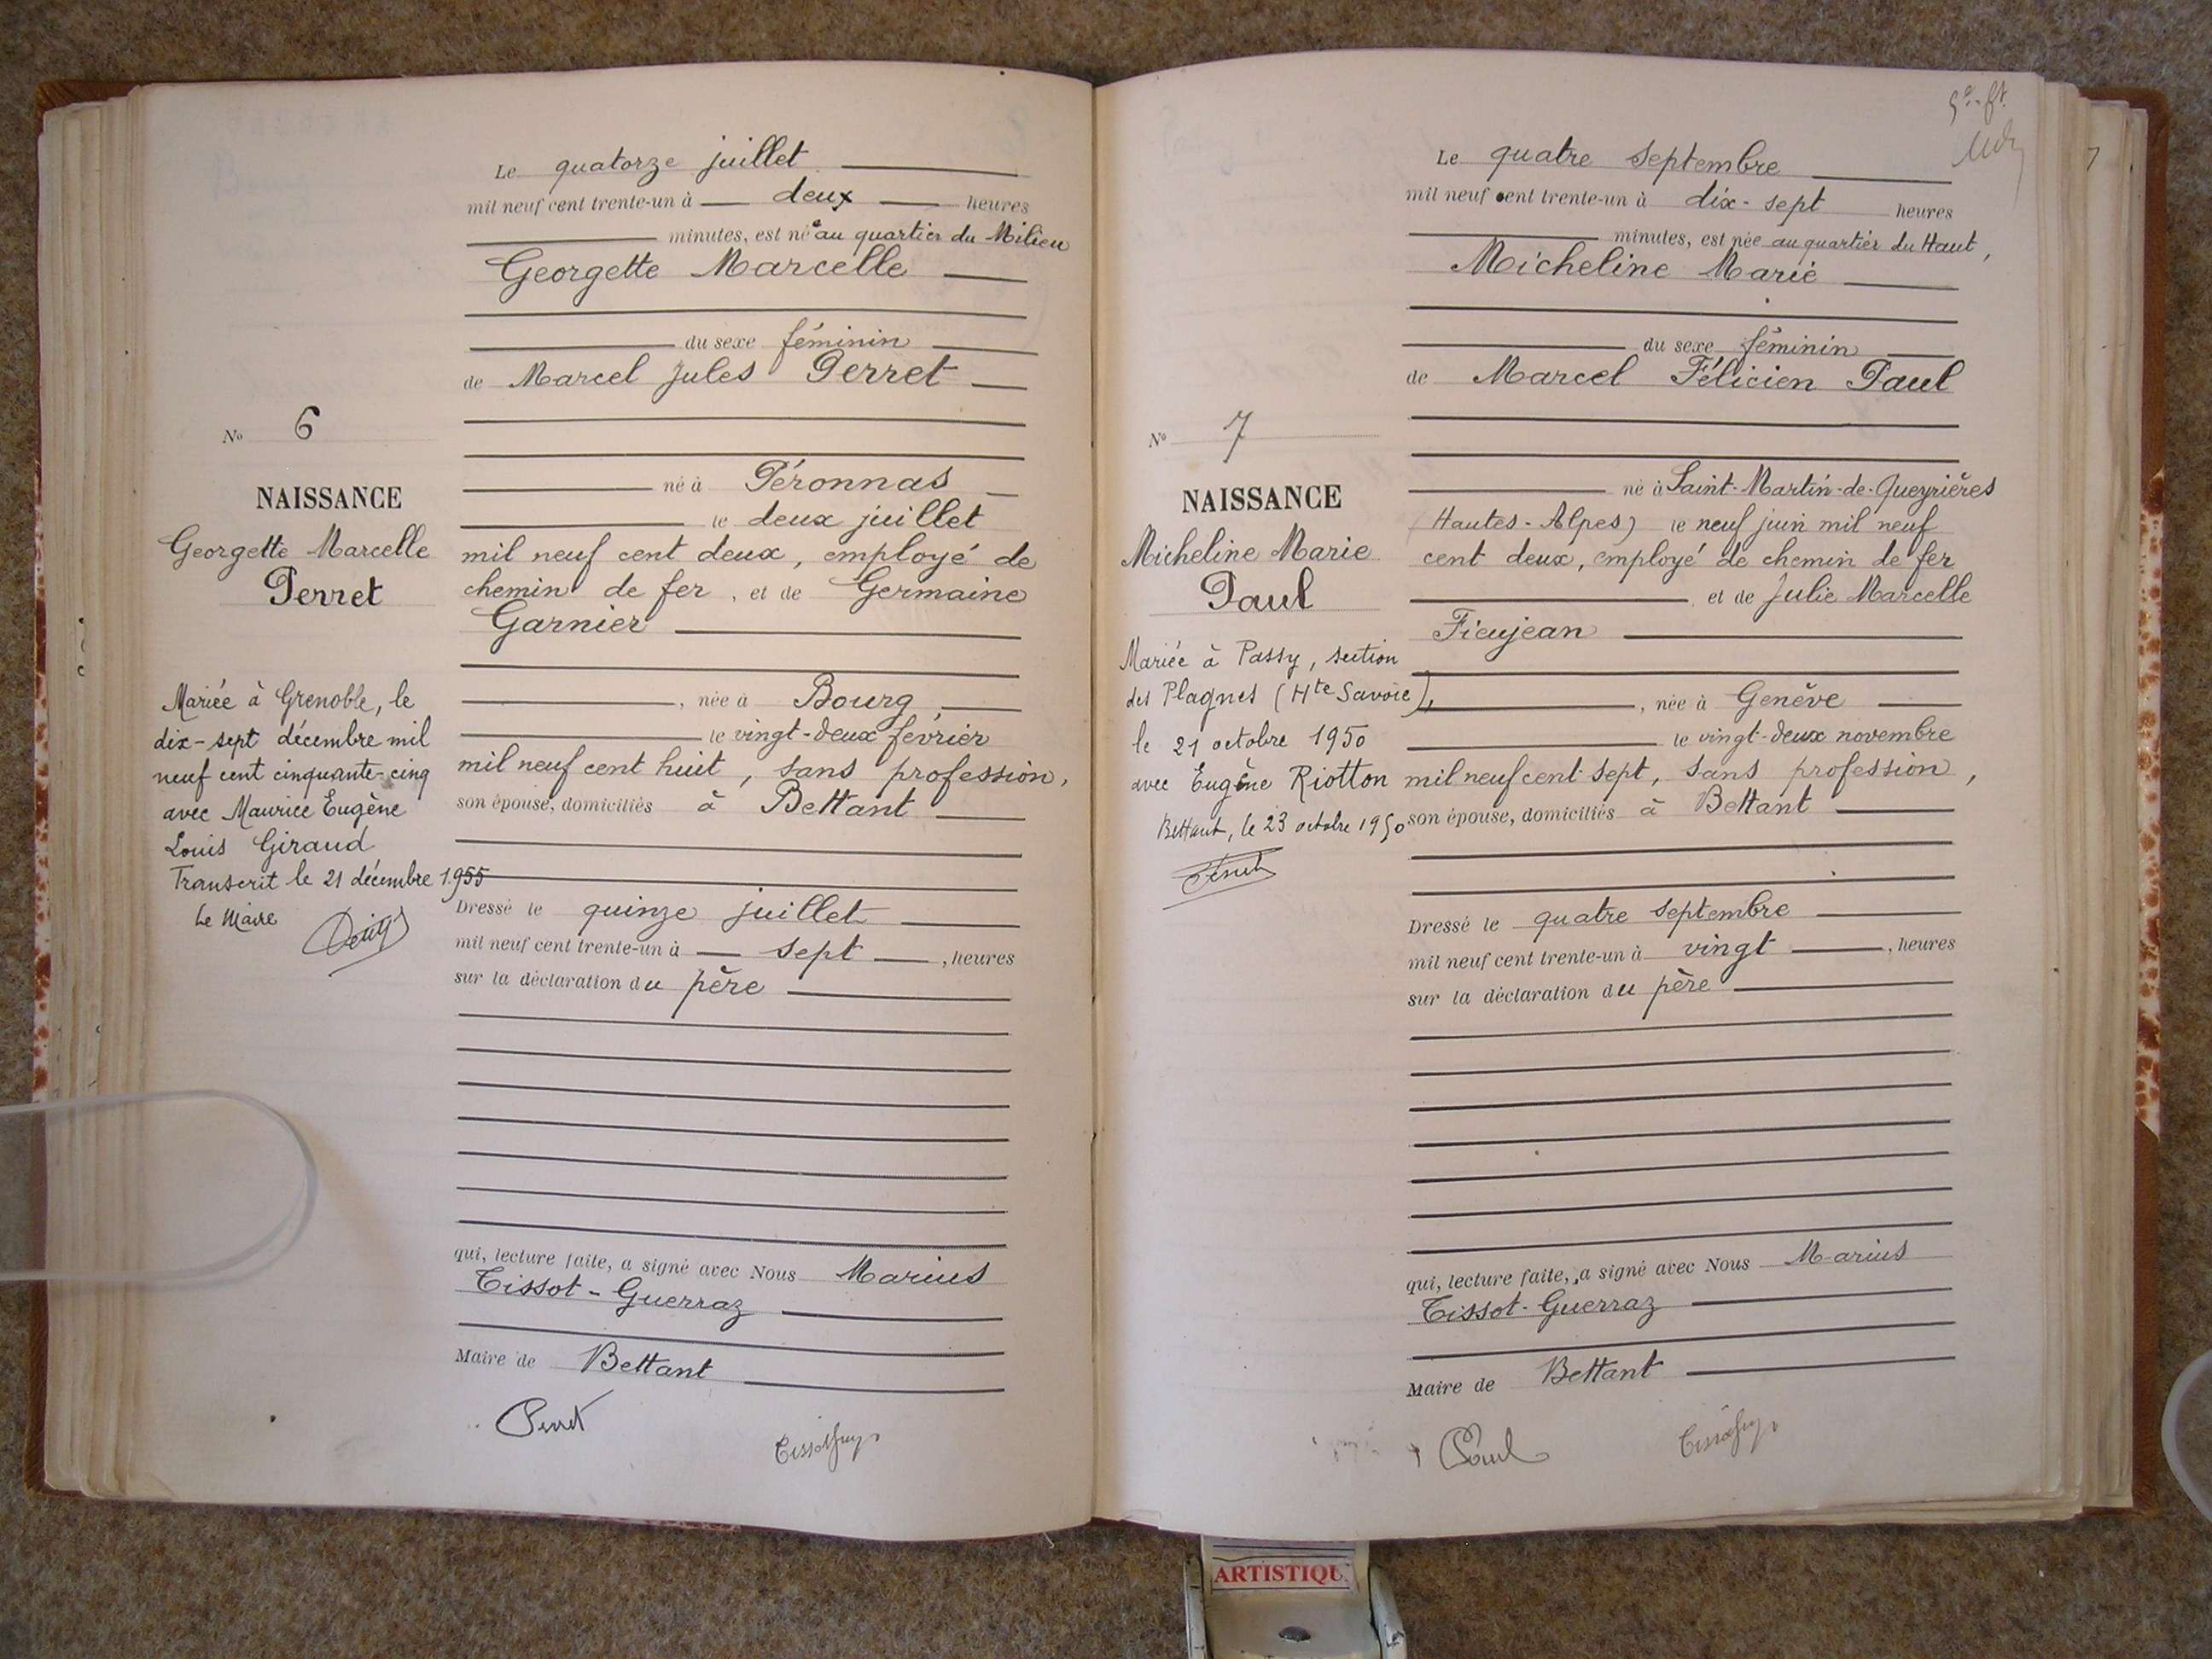 Le quatorze juillet
mil neuf cent trente-un à deux heures
minutes, est née au quartier du Milieu
Georgette Marcelle
du sexe féminin
de Marcel Jules Perret
né à Péronnas
le deux juillet
mil neuf cent deux, employé de
chemin de fer, et de Germaine
Garnier
, née à Bourg,
le vingt-deux février
mil neuf cent huit, sans profession,
son épouse, domiciliés à Bettant
Dressé le quinze juillet
mil neuf cent trente-un à sept, heures
sur la déclaration du père
qui, lecture faite, a signé avec Nous Marius
Tissot-Guerraz
Maire de Bettant
Perret
No 6
NAISSANCE
Georgette Marcelle
Perret
Mariée à Grenoble, le
dix-sept décembre mil
neuf cent cinquante-cinq
avec Maurice Eugène
Louis Giraud
Transcrit le 21 décembre 1955
Le Maire
Le quatre septembre
mil neuf cent trente-un à dix-sept heures
minutes, est née au quartier du Haut,
Micheline Marie
du sexe féminin
de Marcel Félicien Paul
né à Saint-Martin-de-Queyrières
(Hautes-Alpes) le neuf juin mil neuf
cent deux, employé de chemin de fer
et de Julie Marcelle
Fieujean
, née à Genève
le vingt-deux novembre
mil neuf cent sept, sans profession,
son épouse, domiciliés à Bettant
Dressé le quatre septembre
mil neuf cent trente-un à vingt, heures
sur la déclaration du père
qui, lecture faite, a signé avec Nous Marius
Tissot-Guerraz
Maire de Bettant
Paul
No 7
NAISSANCE
Micheline Marie
Paul
Mariée à Passy, section
des Plagnes (Hte Savoie),
le 21 octobre 1950
avec Eugène Riotton
Bettant, le 23 octobre 1950
7
ARTISTIQU